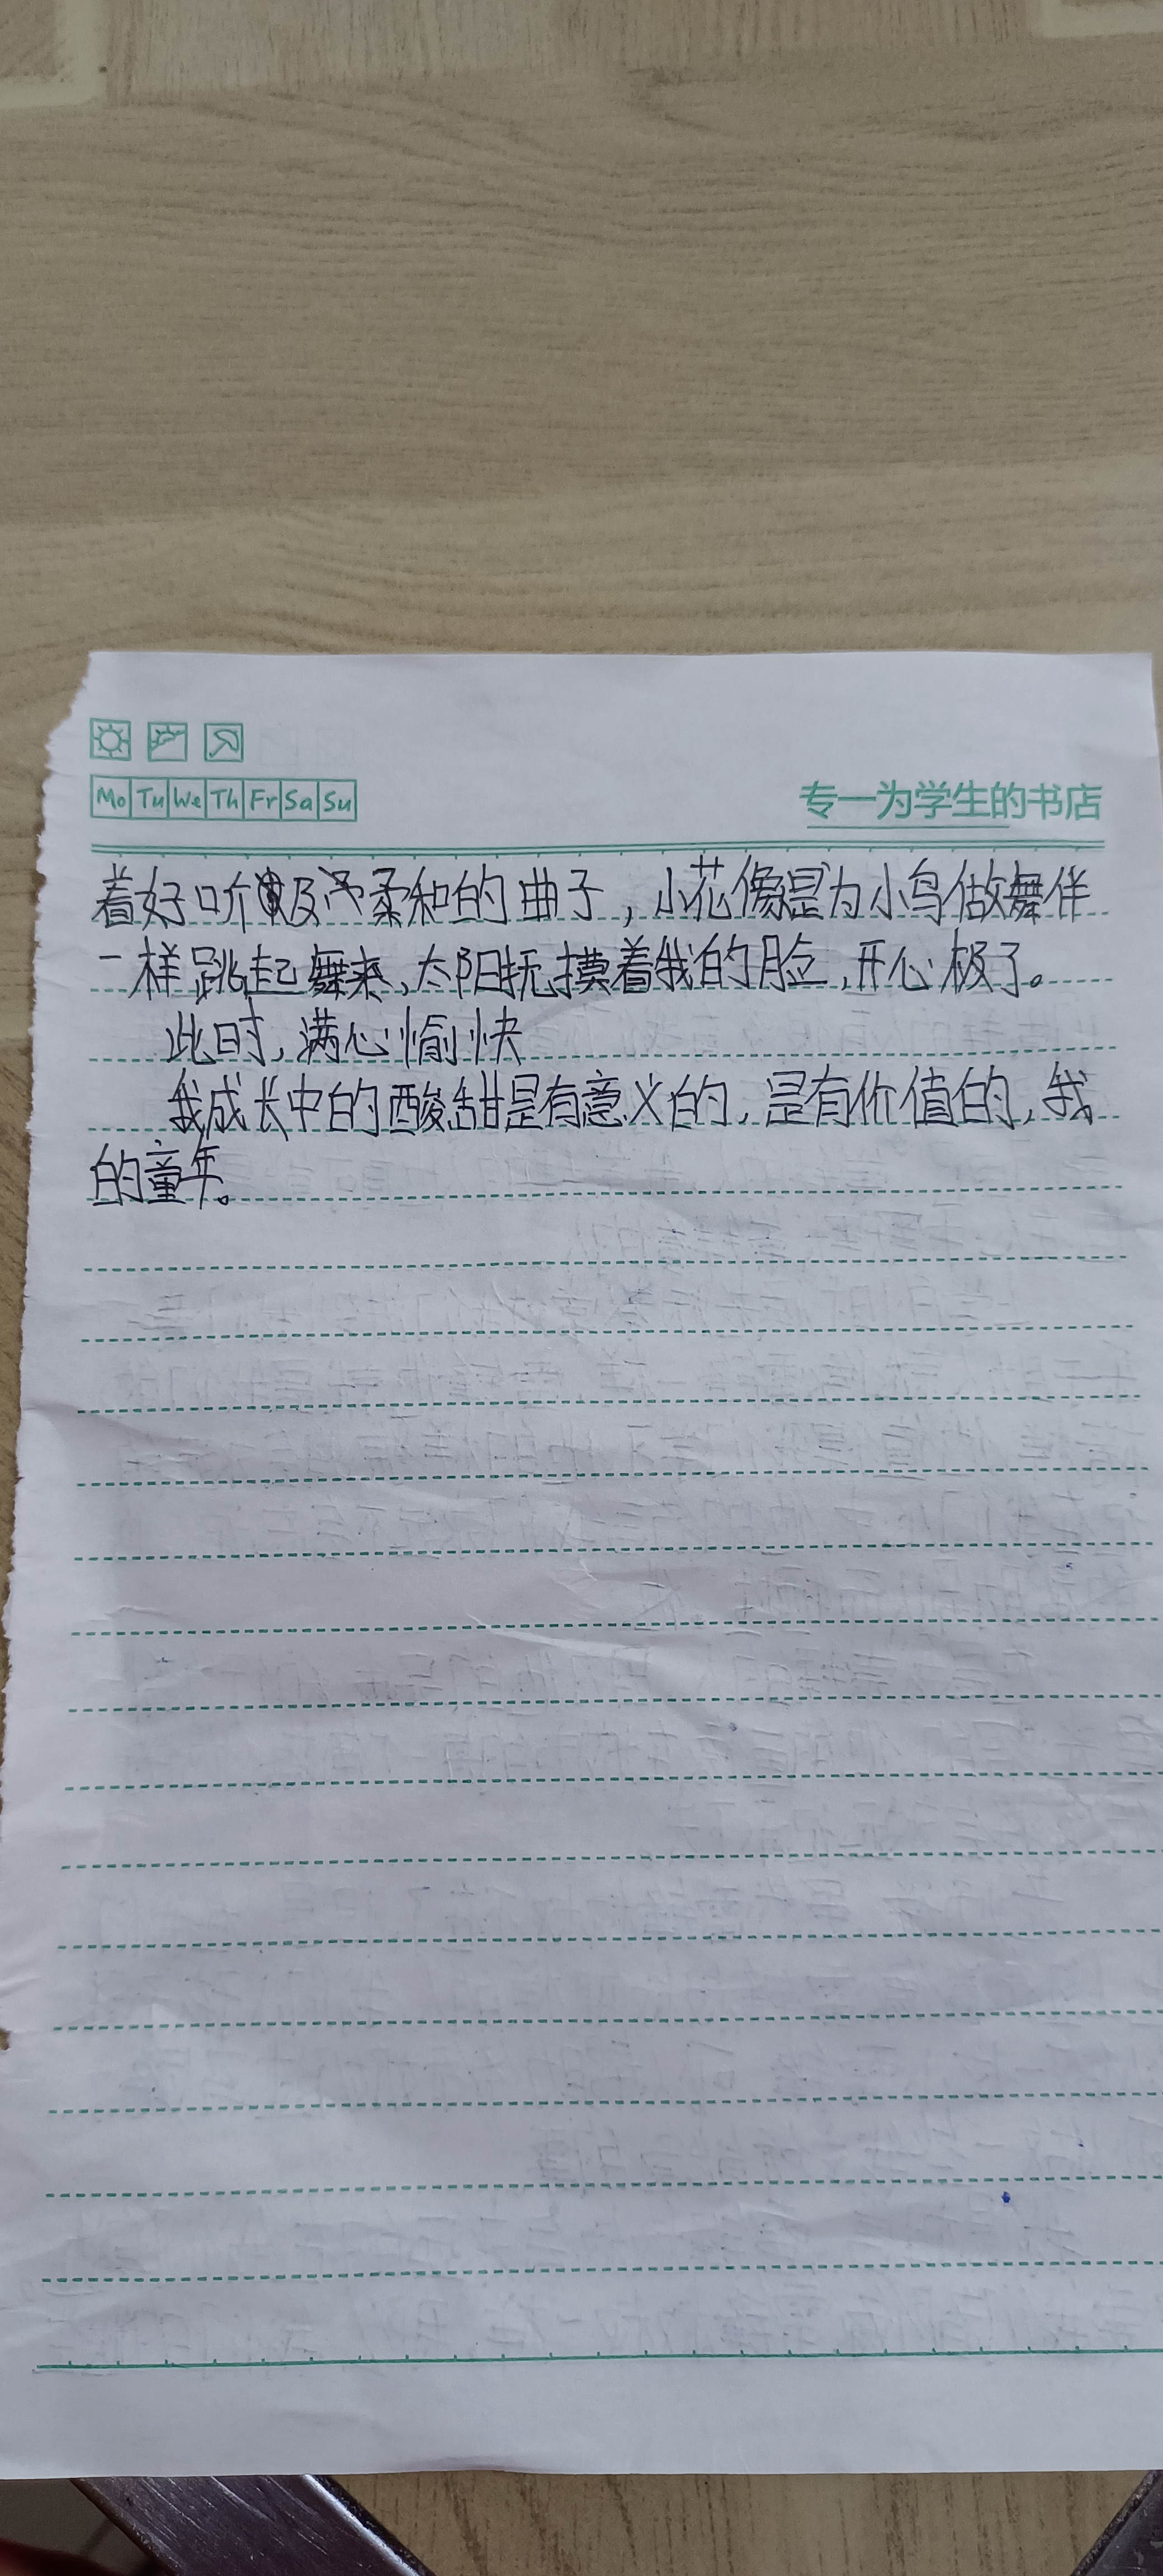 Mo Tu We Th Fr Sa Su
专一为学生的书店
着好听及柔和的曲子，小花像是为小鸟做舞伴
一样跳起舞来，太阳抚摸着我的脸，开心极了。
此时，满心愉快
我成长中的酸甜是有意义的，是有价值的，我
的童年。